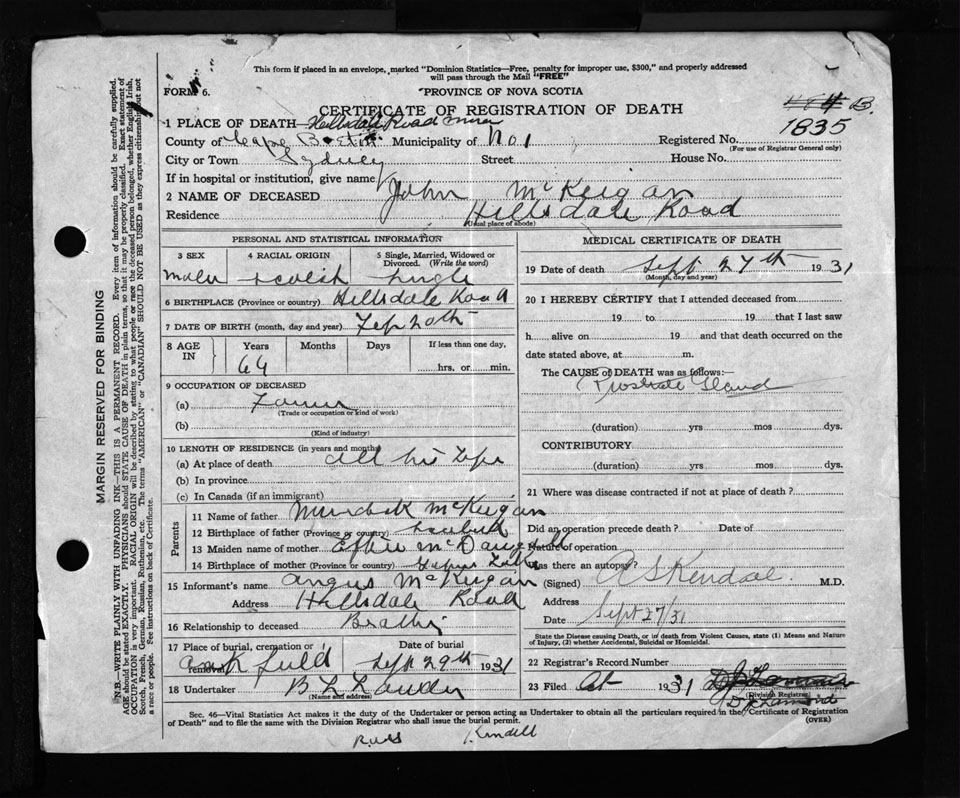 This form if placed in an envelope, marked "Dominion Statistics—Free, penalty for improper use, $300," and properly addressed
will pass through the Mail "FREE"
FORM 6.
PROVINCE OF NOVA SCOTIA
CERTIFICATE OF REGISTRATION OF DEATH
B.
1835
1 PLACE OF DEATH Hillsdale Road Mira
County of Cape Breton Municipality of No 1 Registered No.
(For use of Registrar General only)
City or Town Sydney Street House No.
If in hospital or institution, give name
2 NAME OF DECEASED John McKeigan
Residence Hillsdale Road
(Usual place of abode)
PERSONAL AND STATISTICAL INFORMATION
3 SEX 4 RACIAL ORIGIN 5 Single, Married, Widowed or Divorced. (Write the word)
Male Scotish Single
6 BIRTHPLACE (Province or country) Hillsdale Road
7 DATE OF BIRTH (month, day and year)
8 AGE IN Years Months Days If less than one day,
64 hrs. or min.
9 OCCUPATION OF DECEASED
(a) Farmer
(Trade or occupation or kind of work)
(b)
(Kind of industry)
10 LENGTH OF RESIDENCE (in years and months)
(a) At place of death all his Life
(b) In province
(c) In Canada (if an immigrant)
Parents
11 Name of father McKeigan
12 Birthplace of father (Province or country)
13 Maiden name of mother Effie McDougall
14 Birthplace of mother (Province or country)
15 Informant's name Angus McKeigan
Address Hillsdale Road
16 Relationship to deceased Brother
17 Place of burial, cremation or removal Date of burial
Sept 29th 1931
18 Undertaker
(Name and address)
MEDICAL CERTIFICATE OF DEATH
19 Date of death Sept 27th 1931
(Month, day and year)
20 I HEREBY CERTIFY that I attended deceased from
19 to 19 that I last saw
h alive on 19 and that death occurred on the
date stated above, at m.
The CAUSE of DEATH was as follows:
Prostrate Gland
(duration) yrs mos dys.
CONTRIBUTORY
(duration) yrs mos dys.
21 Where was disease contracted if not at place of death?
Did an operation precede death? Date of
Nature of operation
Was there an autopsy?
(Signed) A S Kendall M.D.
Address
Date Sept 27/31
State the Disease causing Death, or in death from Violent Causes, state (1) Means and Nature
of Injury, (2) whether Accidental, Suicidal or Homicidal.
22 Registrar's Record Number
23 Filed 1931
(Division Registrar)
D J Lamond
Sec. 46—Vital Statistics Act makes it the duty of the Undertaker or person acting as Undertaker to obtain all the particulars required in the Certificate of Registration
of Death" and to file the same with the Division Registrar who shall issue the burial permit. (OVER)
Kendell
MARGIN RESERVED FOR BINDING
N.B.—WRITE PLAINLY WITH UNFADING INK—THIS IS A PERMANENT RECORD. Every item of information should be carefully supplied.
AGE should be stated EXACTLY. PHYSICIANS should STATE CAUSE OF DEATH in plain terms, so that it may be properly classified. Exact statement of
OCCUPATION is very important. RACIAL ORIGIN will be described by stating to what people or race the deceased person belonged, whether English, Irish,
Scotch, French, German, Russian, Ruthenian, etc. The terms "AMERICAN" or "CANADIAN" SHOULD NOT BE USED as they express citizenship but not
a race or people. See instructions on back of Certificate.